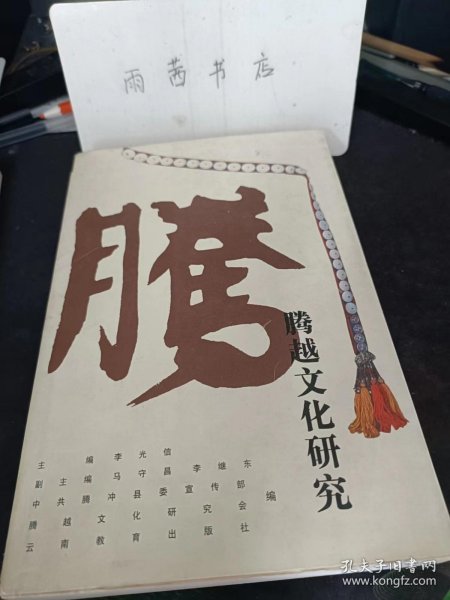 雨茜书店
腾
腾越文化研究
主编 李光信 李继东
副主编 马守昌
中共腾冲县委宣传部
腾越文化研究会 编
云南教育出版社
孔夫子旧书网
www.kongfz.com